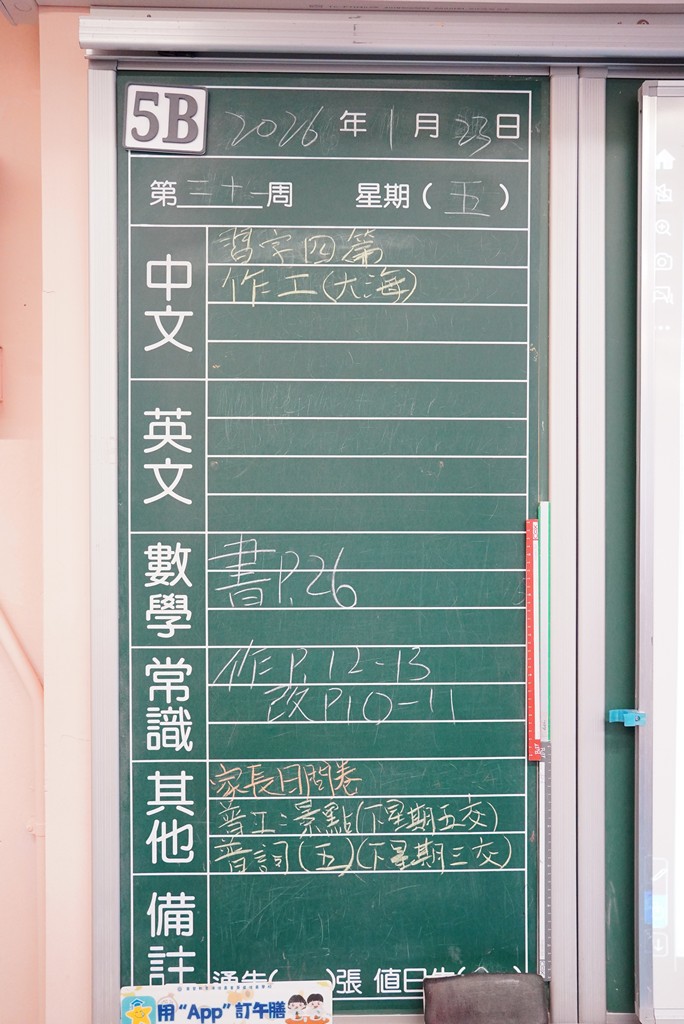 5B 2026年1月23日
第二十一周 星期(五)
中文
習字四篇
作工(大海)
英文
數學
書P.26
常識
作P.12-13
改P10-11
其他
家長日問卷
普工:景點(下星期五交)
普詞(五)(下星期三交)
備註
通告( )張 值日生( )
用“App”訂午膳